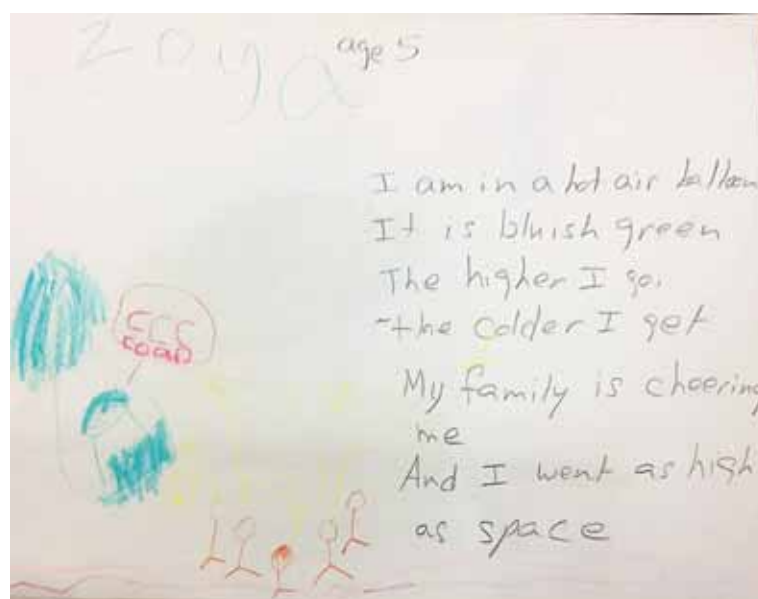 zoya
age 5
I am in a hot air balloon
It is bluish green
The higher I go.
the colder I get
My family is cheering
me
And I went as high
as space